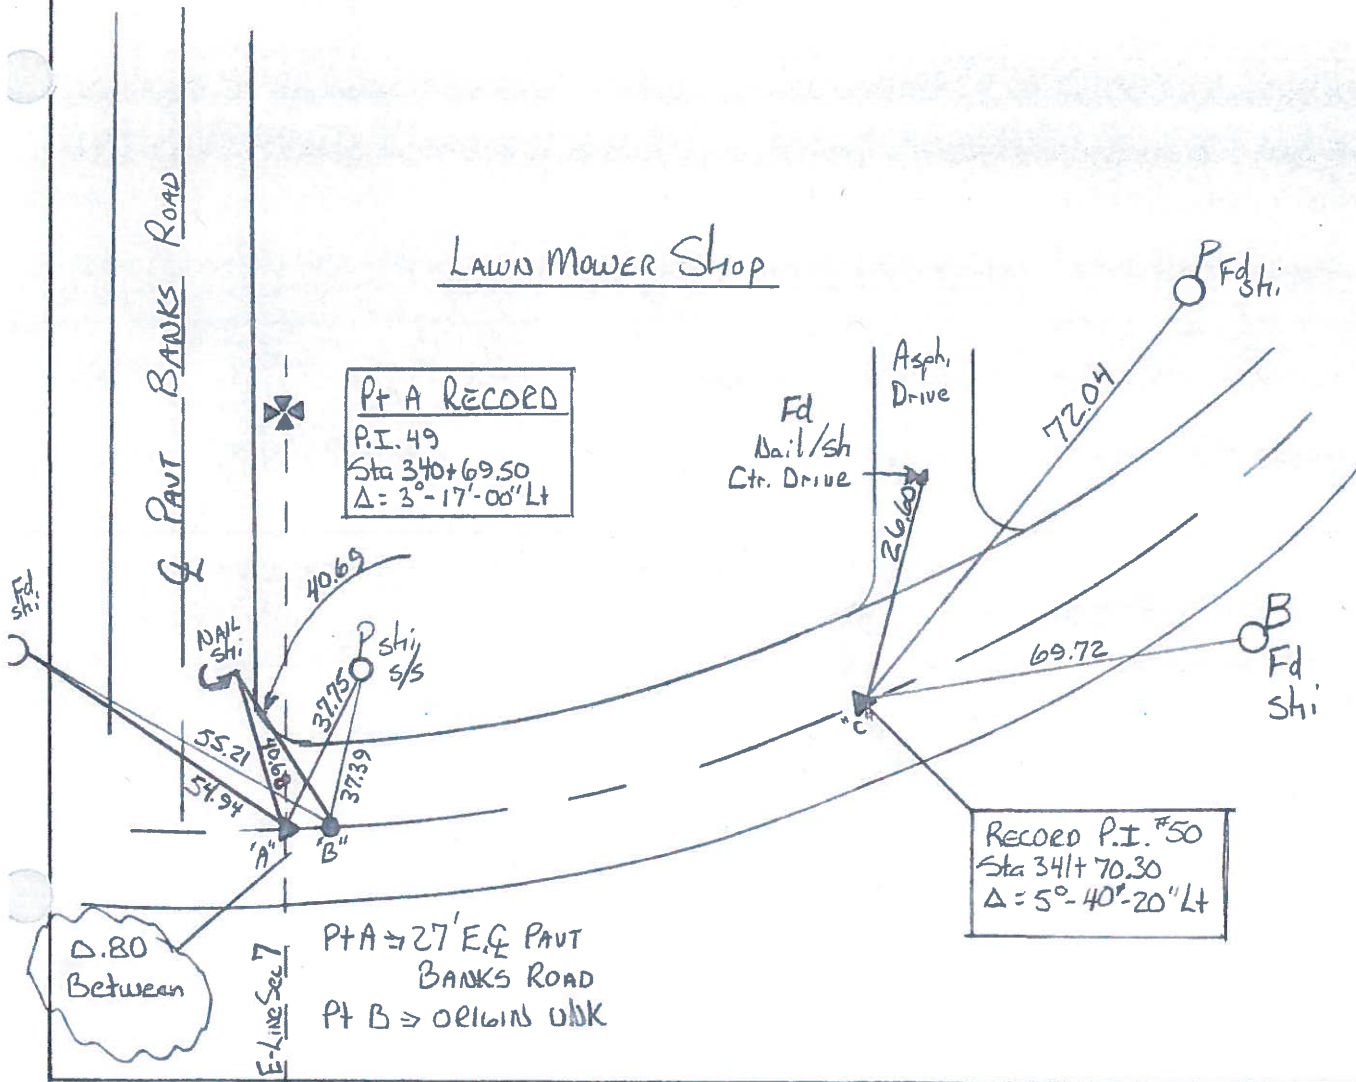 LAWN MOWER SHOP
P Fd
shi
Asph.
Drive
Fd
Nail/sh
Ctr. Drive
72.04
26.60
Pt A RECORD
P.I. 49
Sta 340+69.50
Δ = 3°-17'-00" Lt
℄ PAVT BANKS ROAD
40.69
Fd.
shi
NAIL
shi
P shi
S/S
37.75
37.39
55.21
54.94
"A"
"B"
69.72
B
Fd
shi
"C"
RECORD P.I. #50
Sta 341+70.30
Δ = 5°-40'-20" Lt
Δ.80
Between
E-Line Sec 7
Pt A ⇒ 27' E. ℄ PAVT
BANKS ROAD
Pt B ⇒ ORIGIN UNK